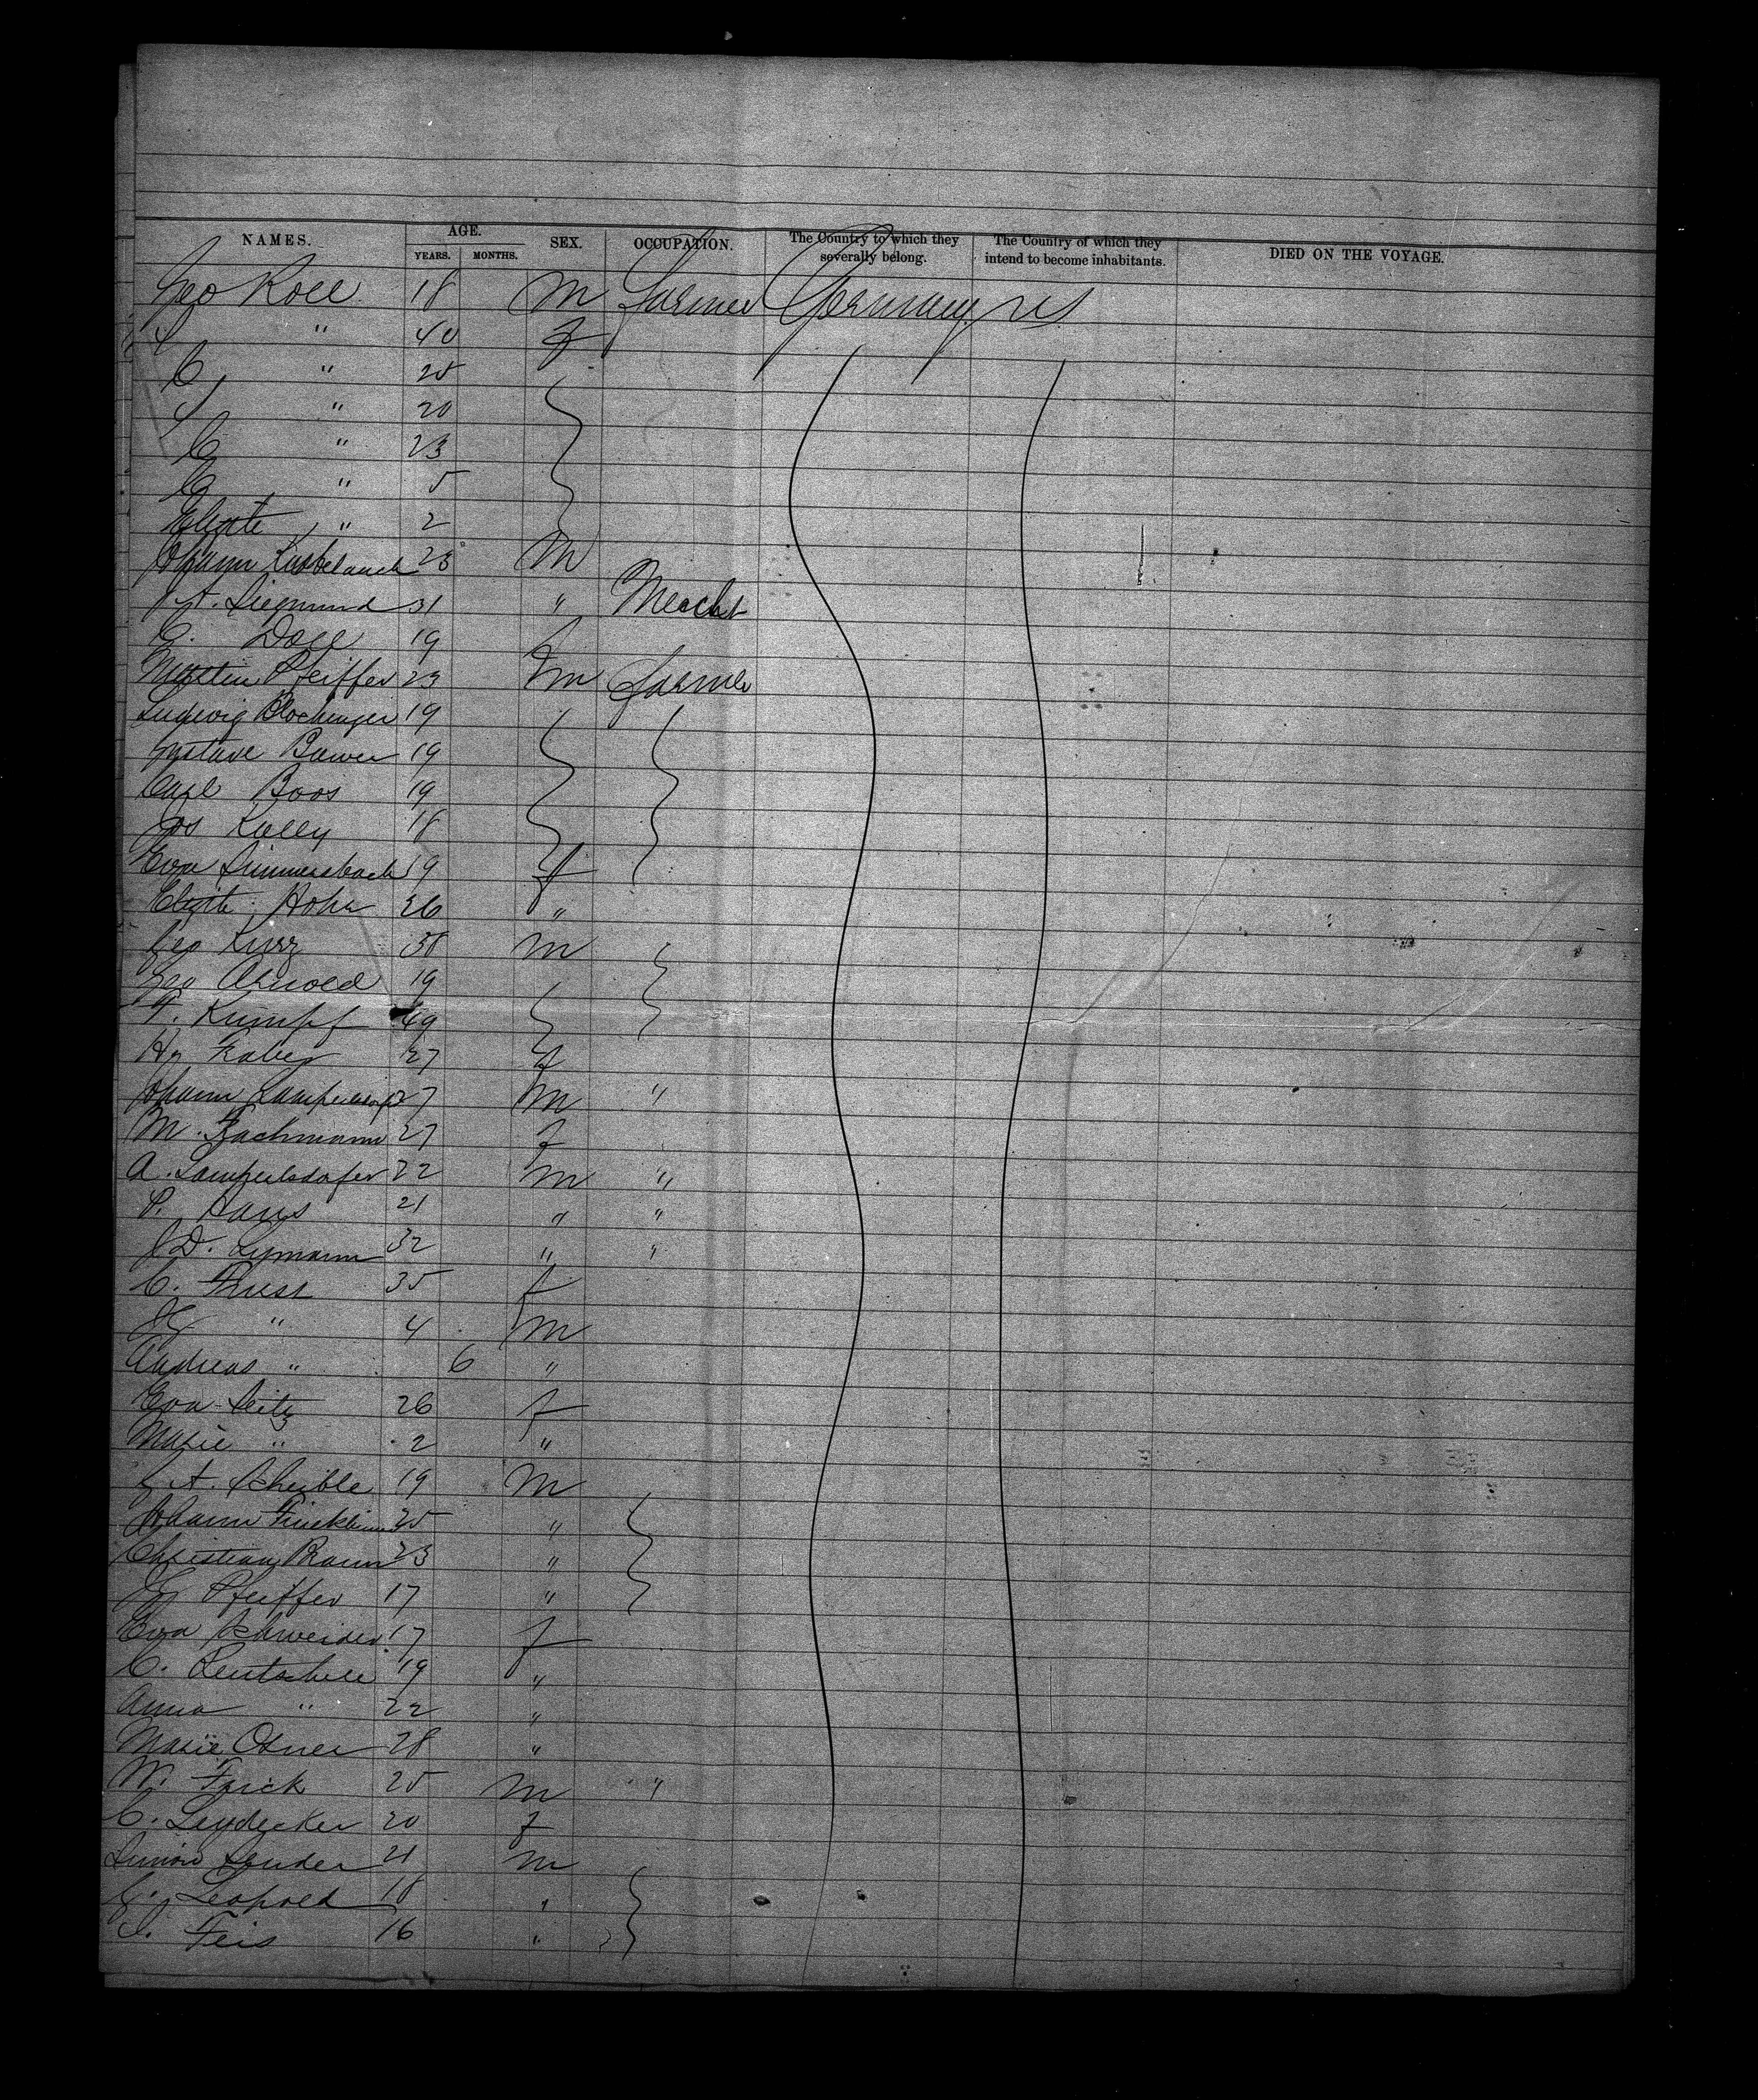 NAMES. AGE. SEX. OCCUPATION. The Country to which they severally belong. The Country of which they intend to become inhabitants. DIED ON THE VOYAGE.
YEARS. MONTHS.
Geo Roll 18 M Farmer Germany US
" 40 f
C " 25
" 20
C " 23
C " 5
Elizte " 2
Johann 23 M
J A. Siegmund 31 " Mercht
C. Doll 19 f
Martin Pfeiffer 23 m Farmer
Ludwig Blochinger 19
Gustave Bauer 19
Carl Boos 19
Jos Kelly 18
Eva Simmersbach 19 f
Elizte Hohn 26 "
Geo Kurz 38 M
Geo Arnold 19
F. Kumpf 49
Hy Faber 27 f
Johann 27 M "
M. Bachmann 27 f
A. Lampertsdorfer 22 M "
P. Hans 21 " "
J D. Lymann 32 " "
C. Trust 35 f
" 4 M
Andreas " 6 "
Eva Seitz 26 f
Marie " 2 "
A. Scheible 19 M
Johann 25 "
Christian Braun 23 "
Pfeiffer 17 "
Eva Schneider 17 f
C. Rentschle 19 "
Anna " 22 "
Marie 28 "
W. Frick 25 M "
C. Leydecker 20 f
Simon 21 M
G. Leopold 18 "
J. Feis 16 "